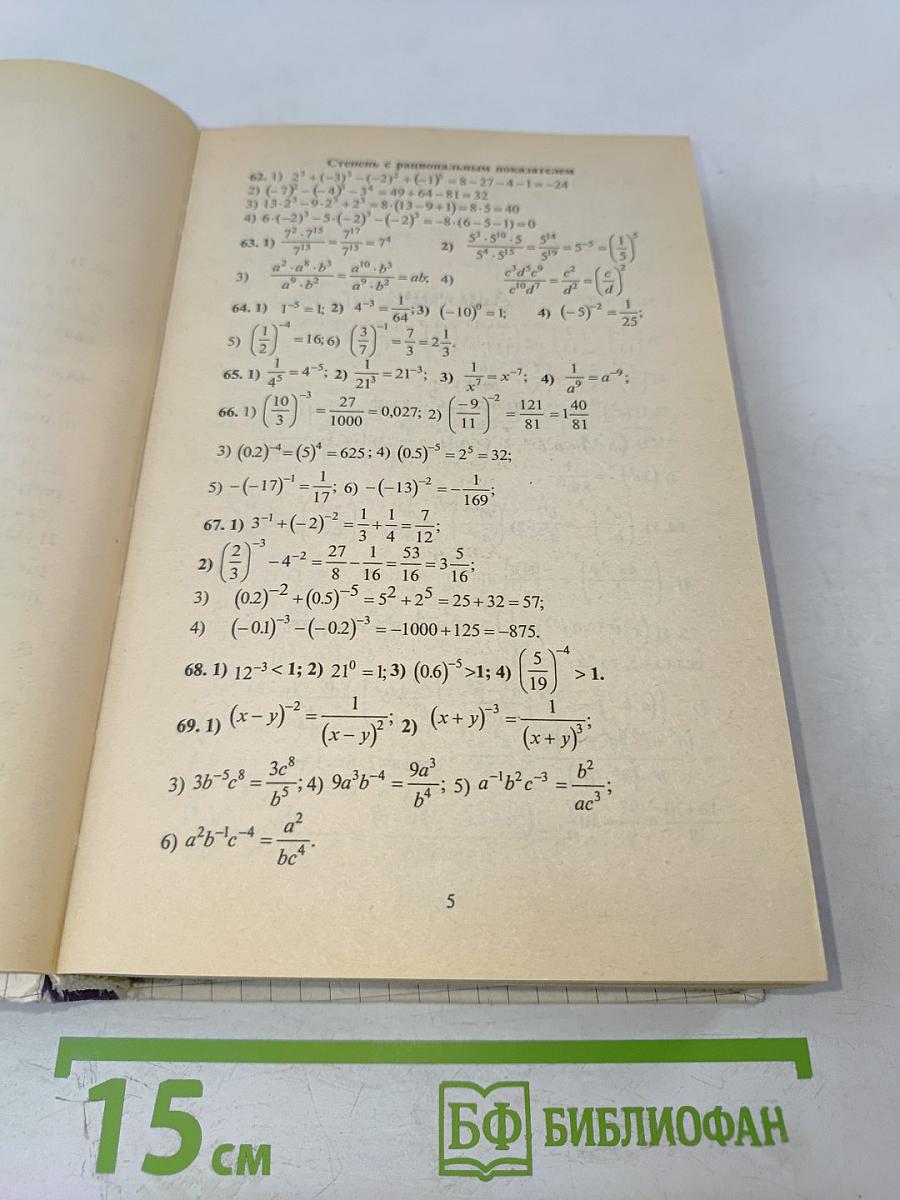 Степень с рациональным показателем
62. 1) 2³ + (−3)³ − (−2)² + (−1)⁵ = 8 − 27 − 4 − 1 = −24
2) (−7)² − (−4)³ − 3⁴ = 49 + 64 − 81 = 32
3) 13·2³ − 9·2³ + 2³ = 8·(13 − 9 + 1) = 8·5 = 40
4) 6·(−2)³ − 5·(−2)³ − (−2)³ = −8·(6 − 5 − 1) = 0
63. 1) (7²·7¹⁵)/7¹³ = 7¹⁷/7¹³ = 7⁴ 2) (5³·5¹⁰·5)/(5⁴·5¹⁵) = 5¹⁴/5¹⁹ = 5⁻⁵ = (1/5)⁵
3) (a²·a⁸·b³)/(a⁹·b²) = (a¹⁰·b³)/(a⁹·b²) = ab; 4) (c³d⁵c⁹)/(c¹⁰d⁷) = c²/d² = (c/d)²
64. 1) 1⁻⁵ = 1; 2) 4⁻³ = 1/64; 3) (−10)⁰ = 1; 4) (−5)⁻² = 1/25;
5) (1/2)⁻⁴ = 16; 6) (3/7)⁻¹ = 7/3 = 2 1/3.
65. 1) 1/4⁵ = 4⁻⁵; 2) 1/21³ = 21⁻³; 3) 1/x⁷ = x⁻⁷; 4) 1/a⁹ = a⁻⁹;
66. 1) (10/3)⁻³ = 27/1000 = 0,027; 2) (−9/11)⁻² = 121/81 = 1 40/81
3) (0.2)⁻⁴ = (5)⁴ = 625; 4) (0.5)⁻⁵ = 2⁵ = 32;
5) −(−17)⁻¹ = 1/17; 6) −(−13)⁻² = −1/169;
67. 1) 3⁻¹ + (−2)⁻² = 1/3 + 1/4 = 7/12;
2) (2/3)⁻³ − 4⁻² = 27/8 − 1/16 = 53/16 = 3 5/16;
3) (0.2)⁻² + (0.5)⁻⁵ = 5² + 2⁵ = 25 + 32 = 57;
4) (−0.1)⁻³ − (−0.2)⁻³ = −1000 + 125 = −875.
68. 1) 12⁻³ < 1; 2) 21⁰ = 1; 3) (0.6)⁻⁵ > 1; 4) (5/19)⁻⁴ > 1.
69. 1) (x − y)⁻² = 1/(x − y)²; 2) (x + y)⁻³ = 1/(x + y)³;
3) 3b⁻⁵c⁸ = 3c⁸/b⁵; 4) 9a³b⁻⁴ = 9a³/b⁴; 5) a⁻¹b²c⁻³ = b²/ac³;
6) a²b⁻¹c⁻⁴ = a²/bc⁴.
5
15 см
БФ БИБЛИОФАН